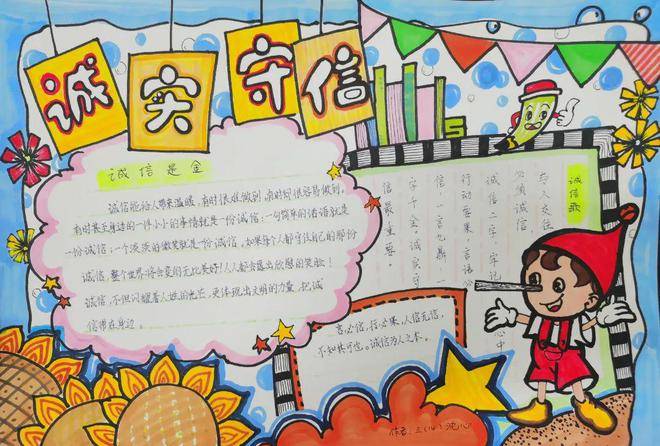 诚实守信
诚信是金
诚信能给人带来温暖，有时很难做到，有时却很容易做到。
有时甚至身边的一件小小的事情就是一份诚信：一句简单的话语就是
一份诚信；一个淡淡的微笑就是一份诚信，如果每个人都守住自己的那份
诚信，整个世界将会变的无比美好！人人都会露出欣慰的笑脸！
诚信，不但闪耀着人性的光芒，更体现出文明的力量，把诚
信带在身边。
诚信歌
与人交往
必须诚信
诚信二字，牢记心中
行动要果，言语必
信，一言九鼎，一
字千金，诚实守
信最重要。
言必信，行必果，人信无信，
不知其可也。诚信为人之本。
作者：三（八）